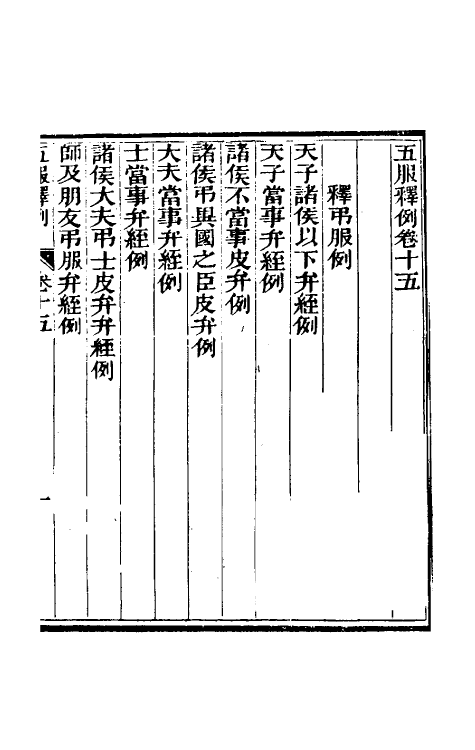 五服釋例卷十五
釋弔服例
天子諸侯以下弁絰例
天子當事弁絰例
諸侯不當事皮弁例
諸侯弔異國之臣皮弁例
大夫當事弁絰例
士當事弁絰例
諸侯大夫弔士皮弁弁絰例
師及朋友弔服弁絰例
五服釋例 卷十五 一